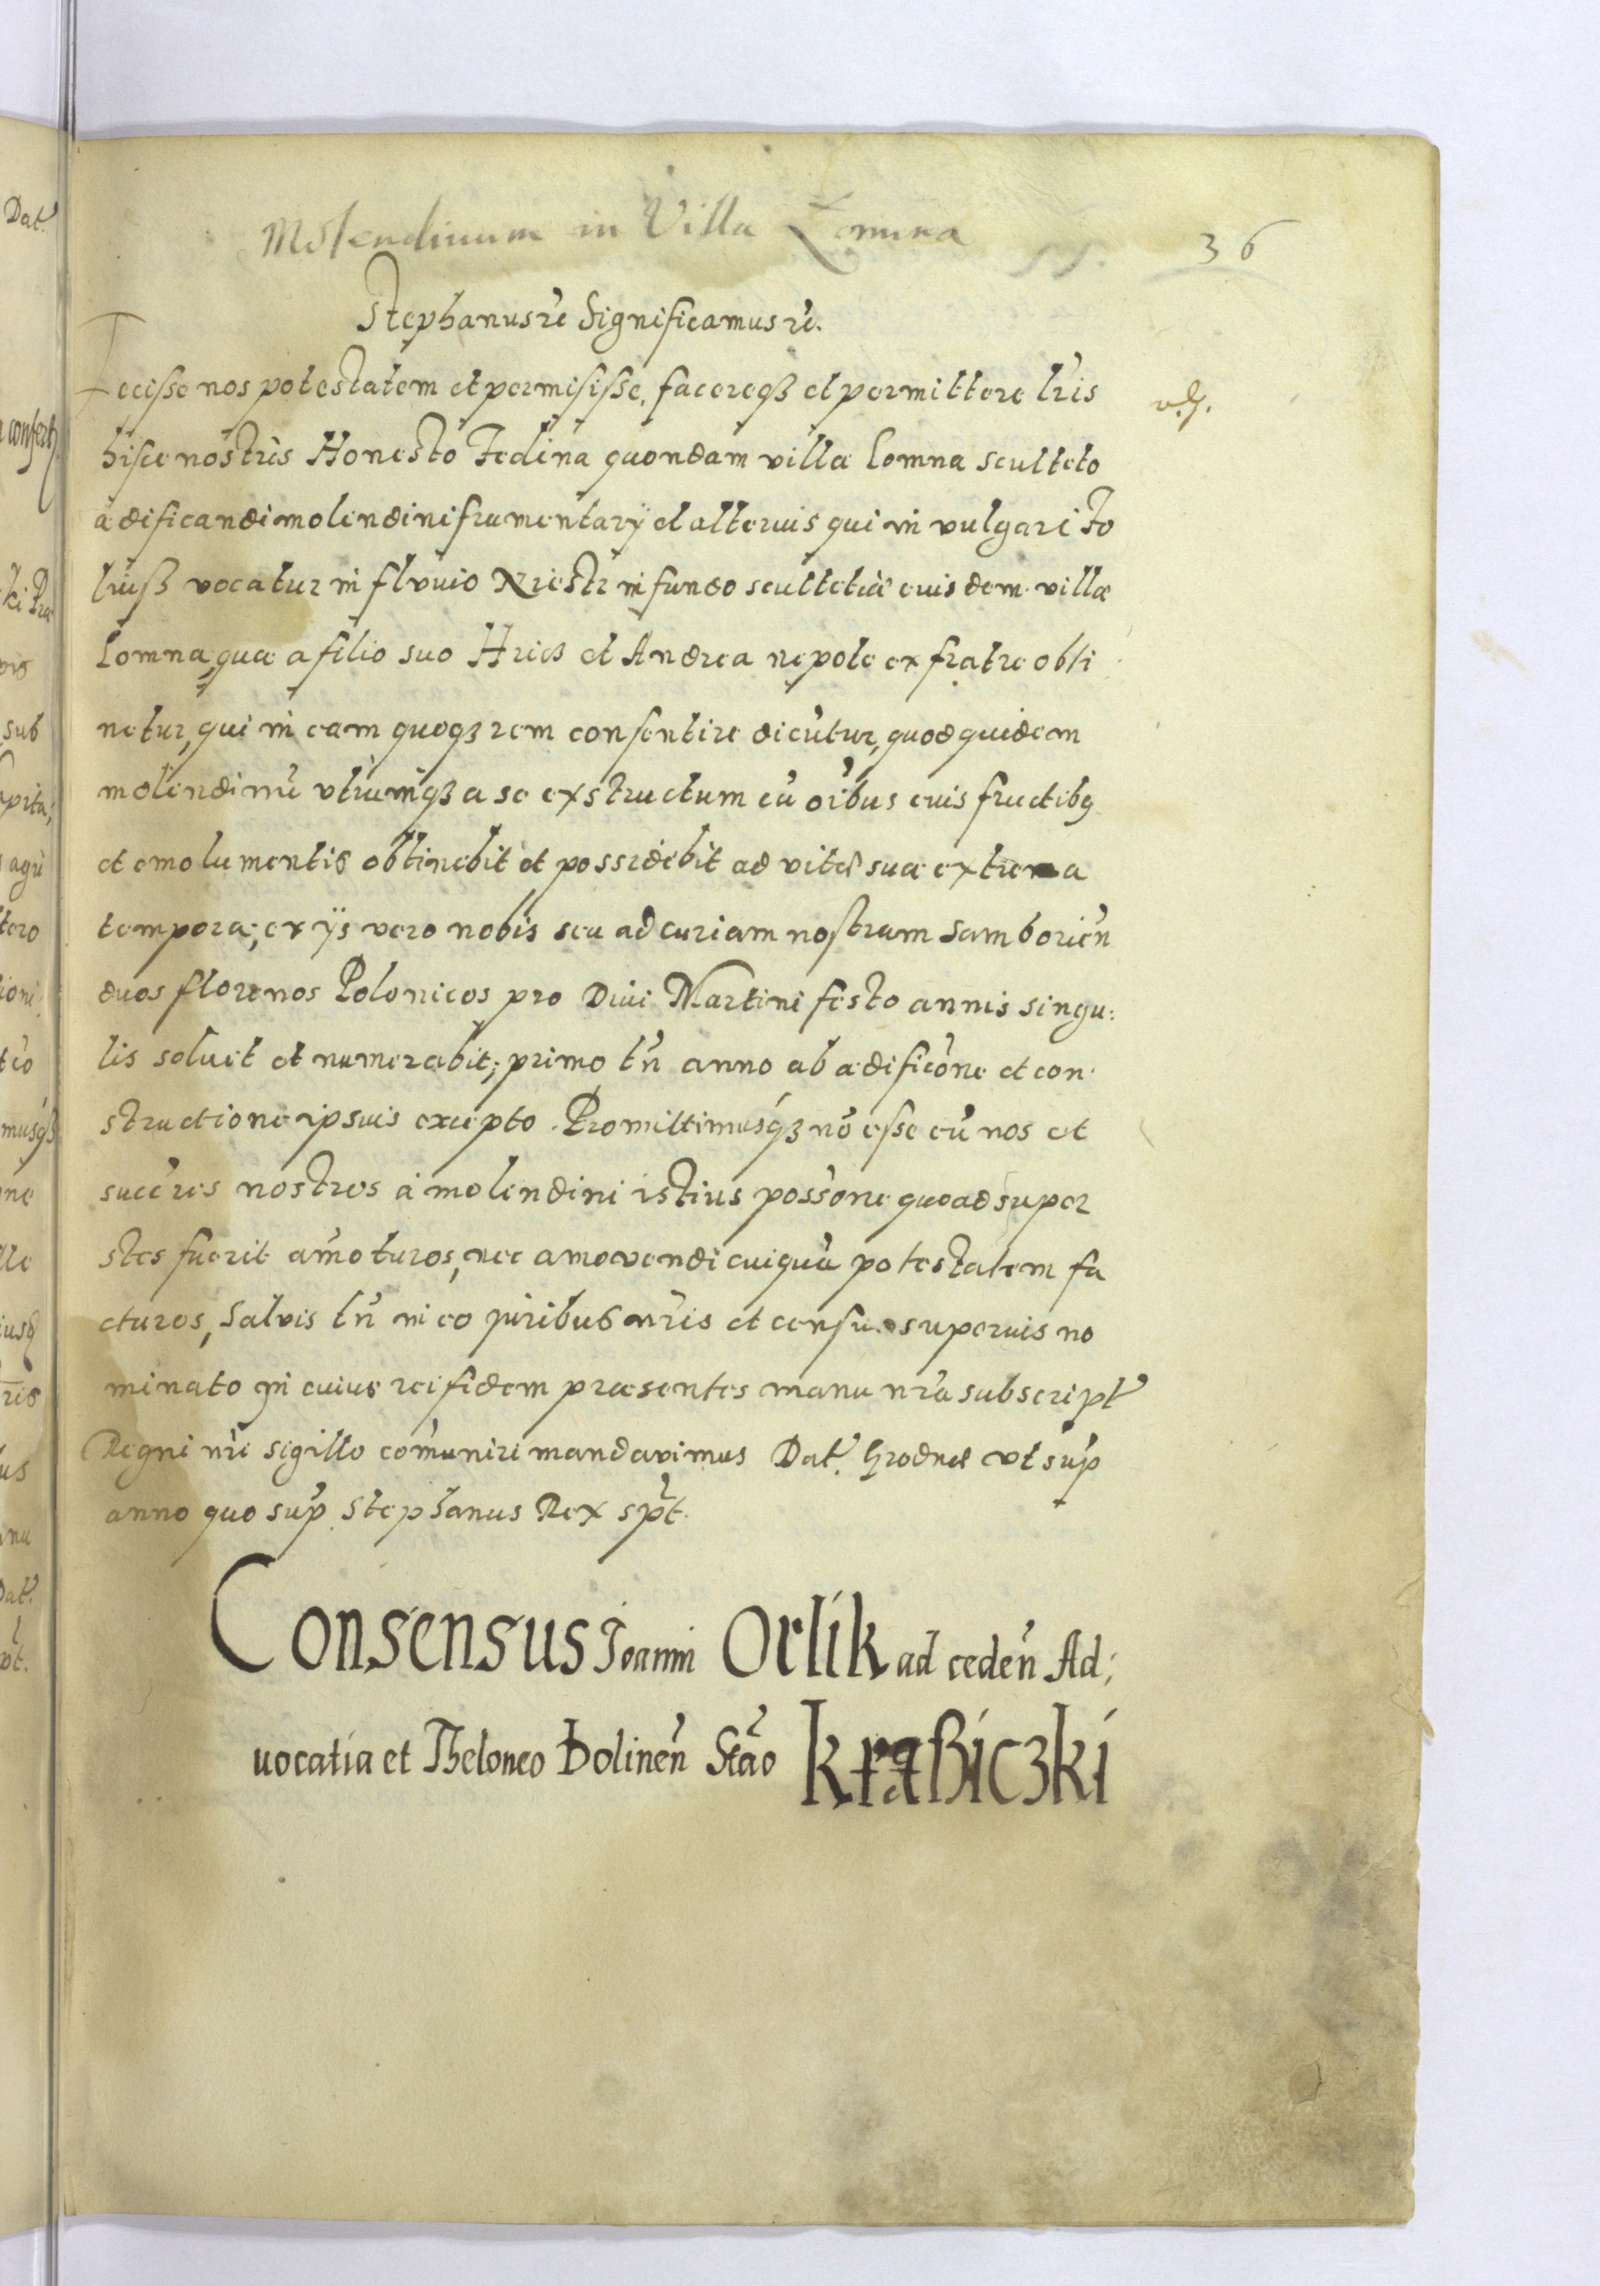 Molendinum in Villa Lomna
36
Stephanus rē Significamus rē.
Fecisse nos potestatem et permisisse, facereqȝ et permittere lr̃is
hisce nostris Honesto Fedina quondam villæ Lomna sculteto
ædificandi molendini frumentarÿ et alterius qui in vulgari fo
luss vocatur in fluvio Nriestr in fundo scultetiæ euisdem villæ
Lomna, quæ a filio suo Hricz et Andrea nepote ex fratre obti
netur, qui in eam quoqȝ rem consentire dicūtur, quod quidem
molendinū vtrumqȝ a se exstructum cū oĩbus euis fructibq
et emolumentis obtinebit et possidebit ad vitæ suæ extrema
tempora; ex ÿs vero nobis seu ad curiam nostram Samborieñ
duos florenos Polonicos pro Diui Martini festo annis singu:
lis soluet et numerabit; primo tñ anno ab ædificōne et con
structione ipsuis excepto. Promittimusqȝ nō esse cū nos et
succ̃res nostros à molendini istius poss̃one quoad super
stes fuerit amoturos, nec amovendi cuiquā potestatem fa
cturos, Salvis tñ in eo juribus nr̃is et censu superuis no
minato in cuius rei fidem præsentes manu nr̃a subscript̃
Regni nr̃i sigillo com̃unire mandavimus Dat̃. Grodnæ vt sup̃
anno quo sup̃ Stephanus Rex sp̃t.
Consensus Joanni Orlik ad cedeñ Ad:
uocatia et Theloneo Dolineñ Stāo Krąssiczki